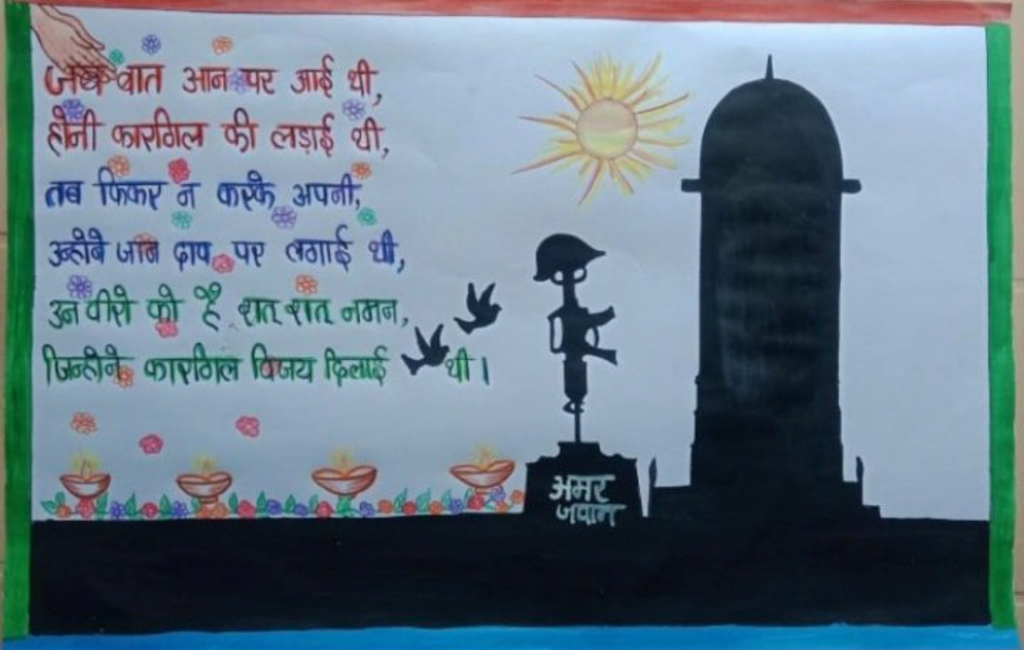 जब बात आन पर आई थी,
होनी कारगिल की लड़ाई थी,
तब फिकर न करके अपनी,
उन्होंने जान दाव पर लगाई थी,
उन वीरो को है शत् शत् नमन,
जिन्होंने कारगिल विजय दिलाई थी।
अमर
जवान